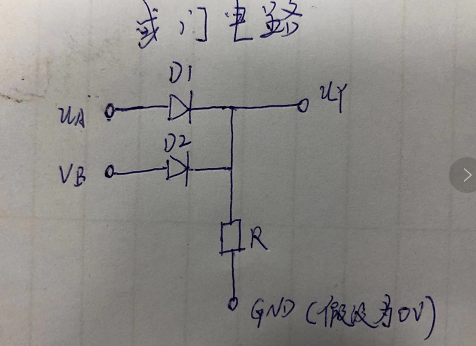 或门电路
D1
uA
uY
D2
VB
R
GND (假设为0V)